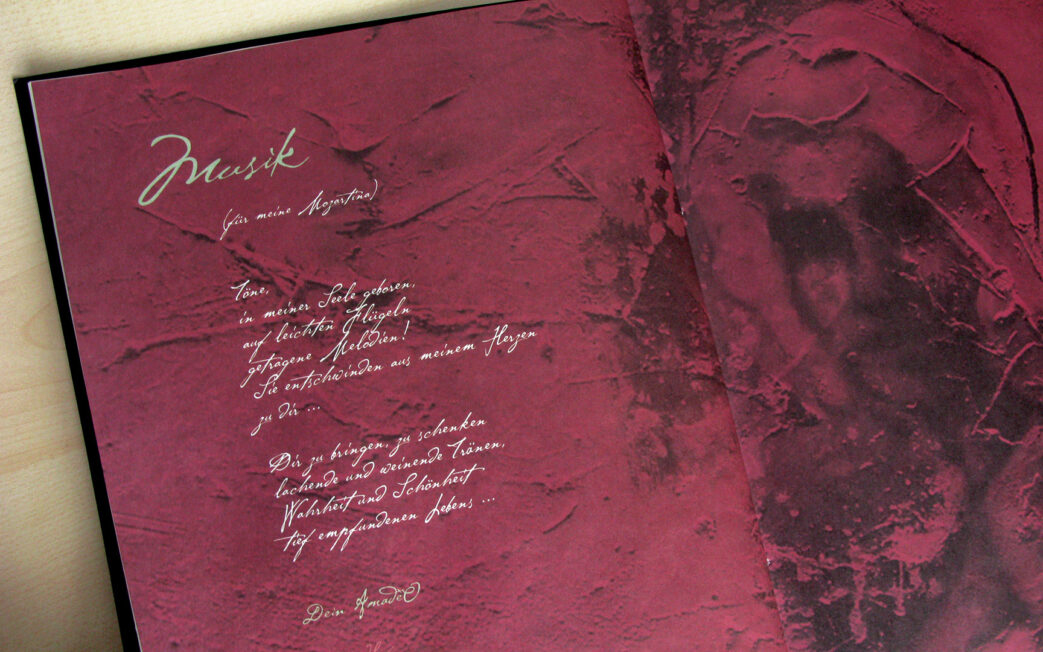 Musik
(für meine Mozartina)
Töne,
in meiner Seele geboren,
auf leichten Flügeln
getragene Melodien!
Sie entschwinden aus meinem Herzen
zu dir ...
Dir zu bringen, zu schenken
lachende und weinende Tränen,
Wahrheit und Schönheit
tief empfundenen Lebens ...
Dein Amadé